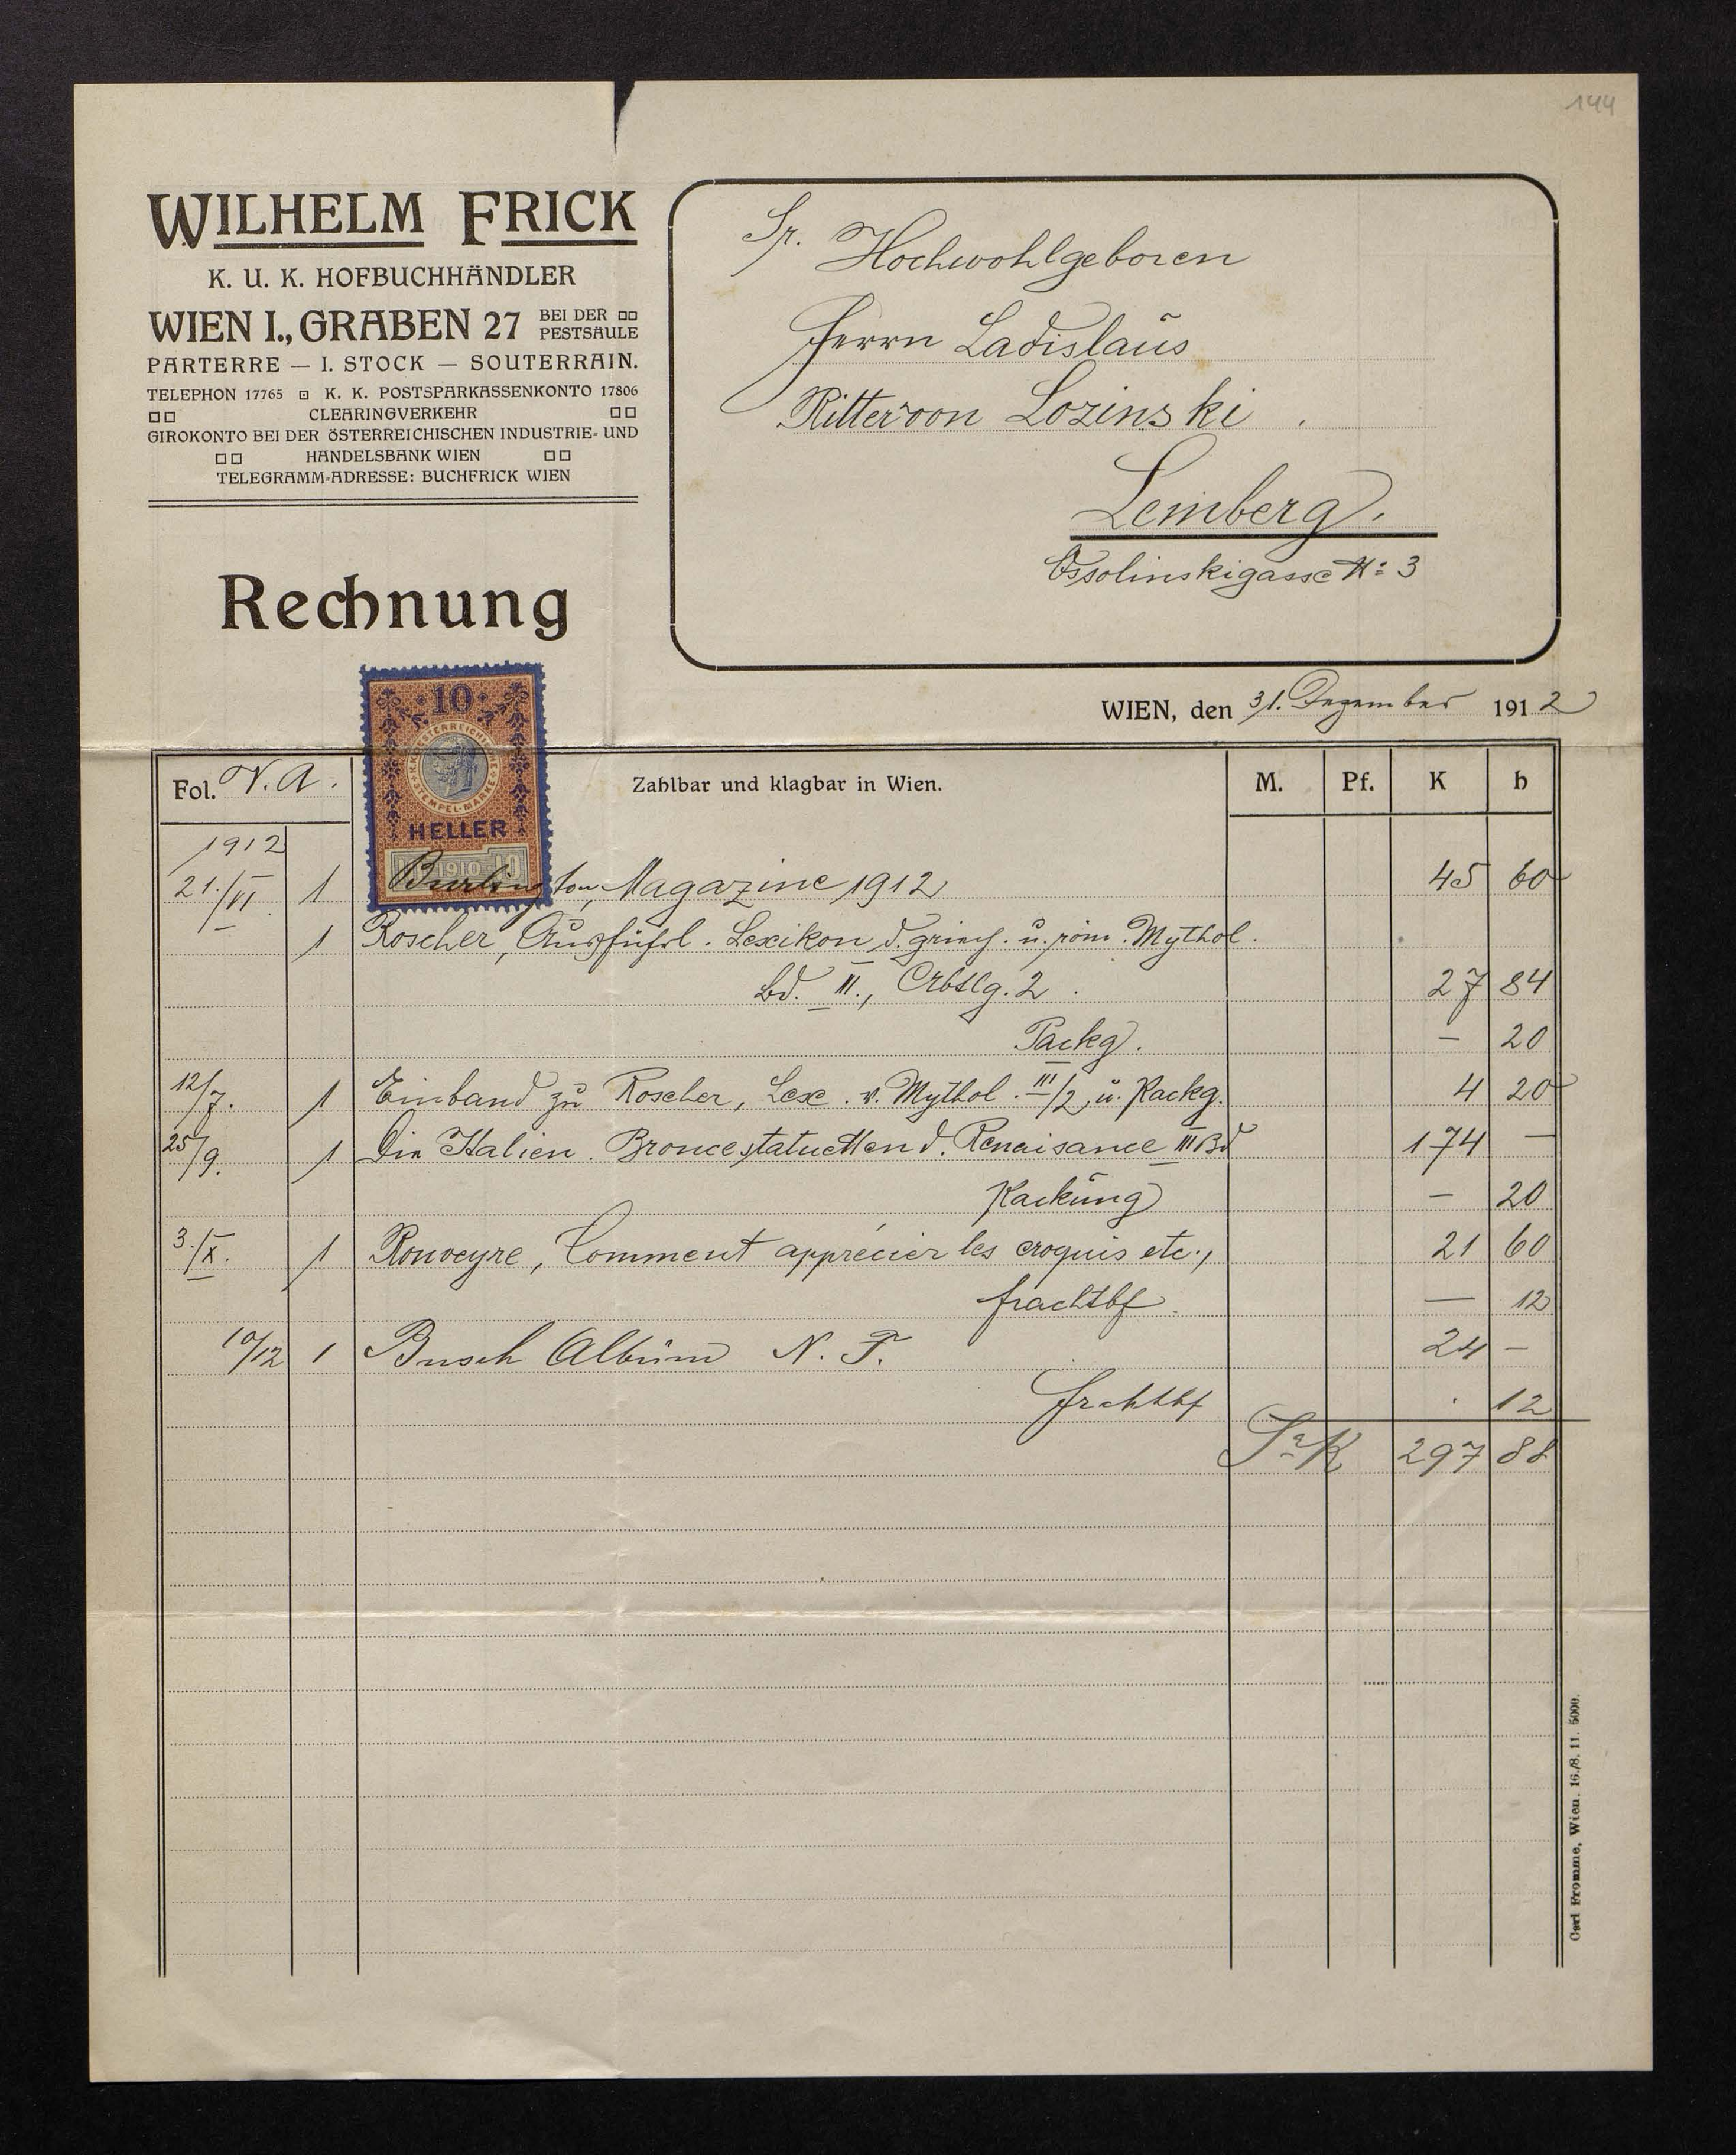 144
WILHELM FRICK
K. U. K. HOFBUCHHÄNDLER
WIEN I., GRABEN 27 BEI DER PESTSÄULE
PARTERRE — I. STOCK — SOUTERRAIN.
TELEPHON 17765 K. K. POSTSPARKASSENKONTO 17806
CLEARINGVERKEHR
GIROKONTO BEI DER ÖSTERREICHISCHEN INDUSTRIE- UND
HANDELSBANK WIEN
TELEGRAMM-ADRESSE: BUCHFRICK WIEN
Rechnung
Sr. Hochwohlgeboren
Herrn Ladislaus
Ritter von Lozinski.
Lemberg.
Ossolinskigasse No 3
WIEN, den 31. Dezember 1912
10
K.K. ÖSTERREICHISCHE STEMPEL-MARKE
HELLER
10 1910 10
Fol. N. A. Zahlbar und klagbar in Wien. M. Pf. K h
1912
21./VI 1 Burlington, Magazine 1912 45 60
1 Roscher, Ausführl. Lexikon d. griech. u. röm. Mythol.
Bd. II., 2. 27 84
Packg. — 20
12/7. 1 Einband zu Roscher, Lex. v. Mythol. III/2, u. Packg. 4 20
25/9. 1 Die Italien. Broncestatuetten d. Renaisance III Bd 174 —
Packung — 20
3./X. 1 Rouveyre, Comment apprécier les croquis etc., 21 60
frachtbf. — 12
10/12 1 Busch Album N. F. 24 —
frchtbf . 12
Sa K 297 88
Carl Fromme, Wien. 16./8. 11. 5000.